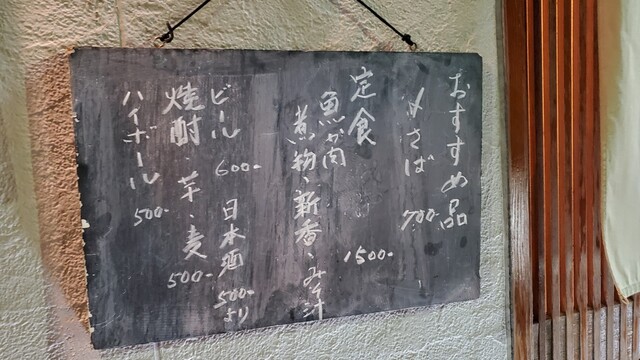 おすすめ品
〆さば 700-
定食
魚か肉 1500-
煮物、新香、みそ汁
ビール 600-
日本酒 500-より
焼酎・芋・麦 500-
ハイボール 500-